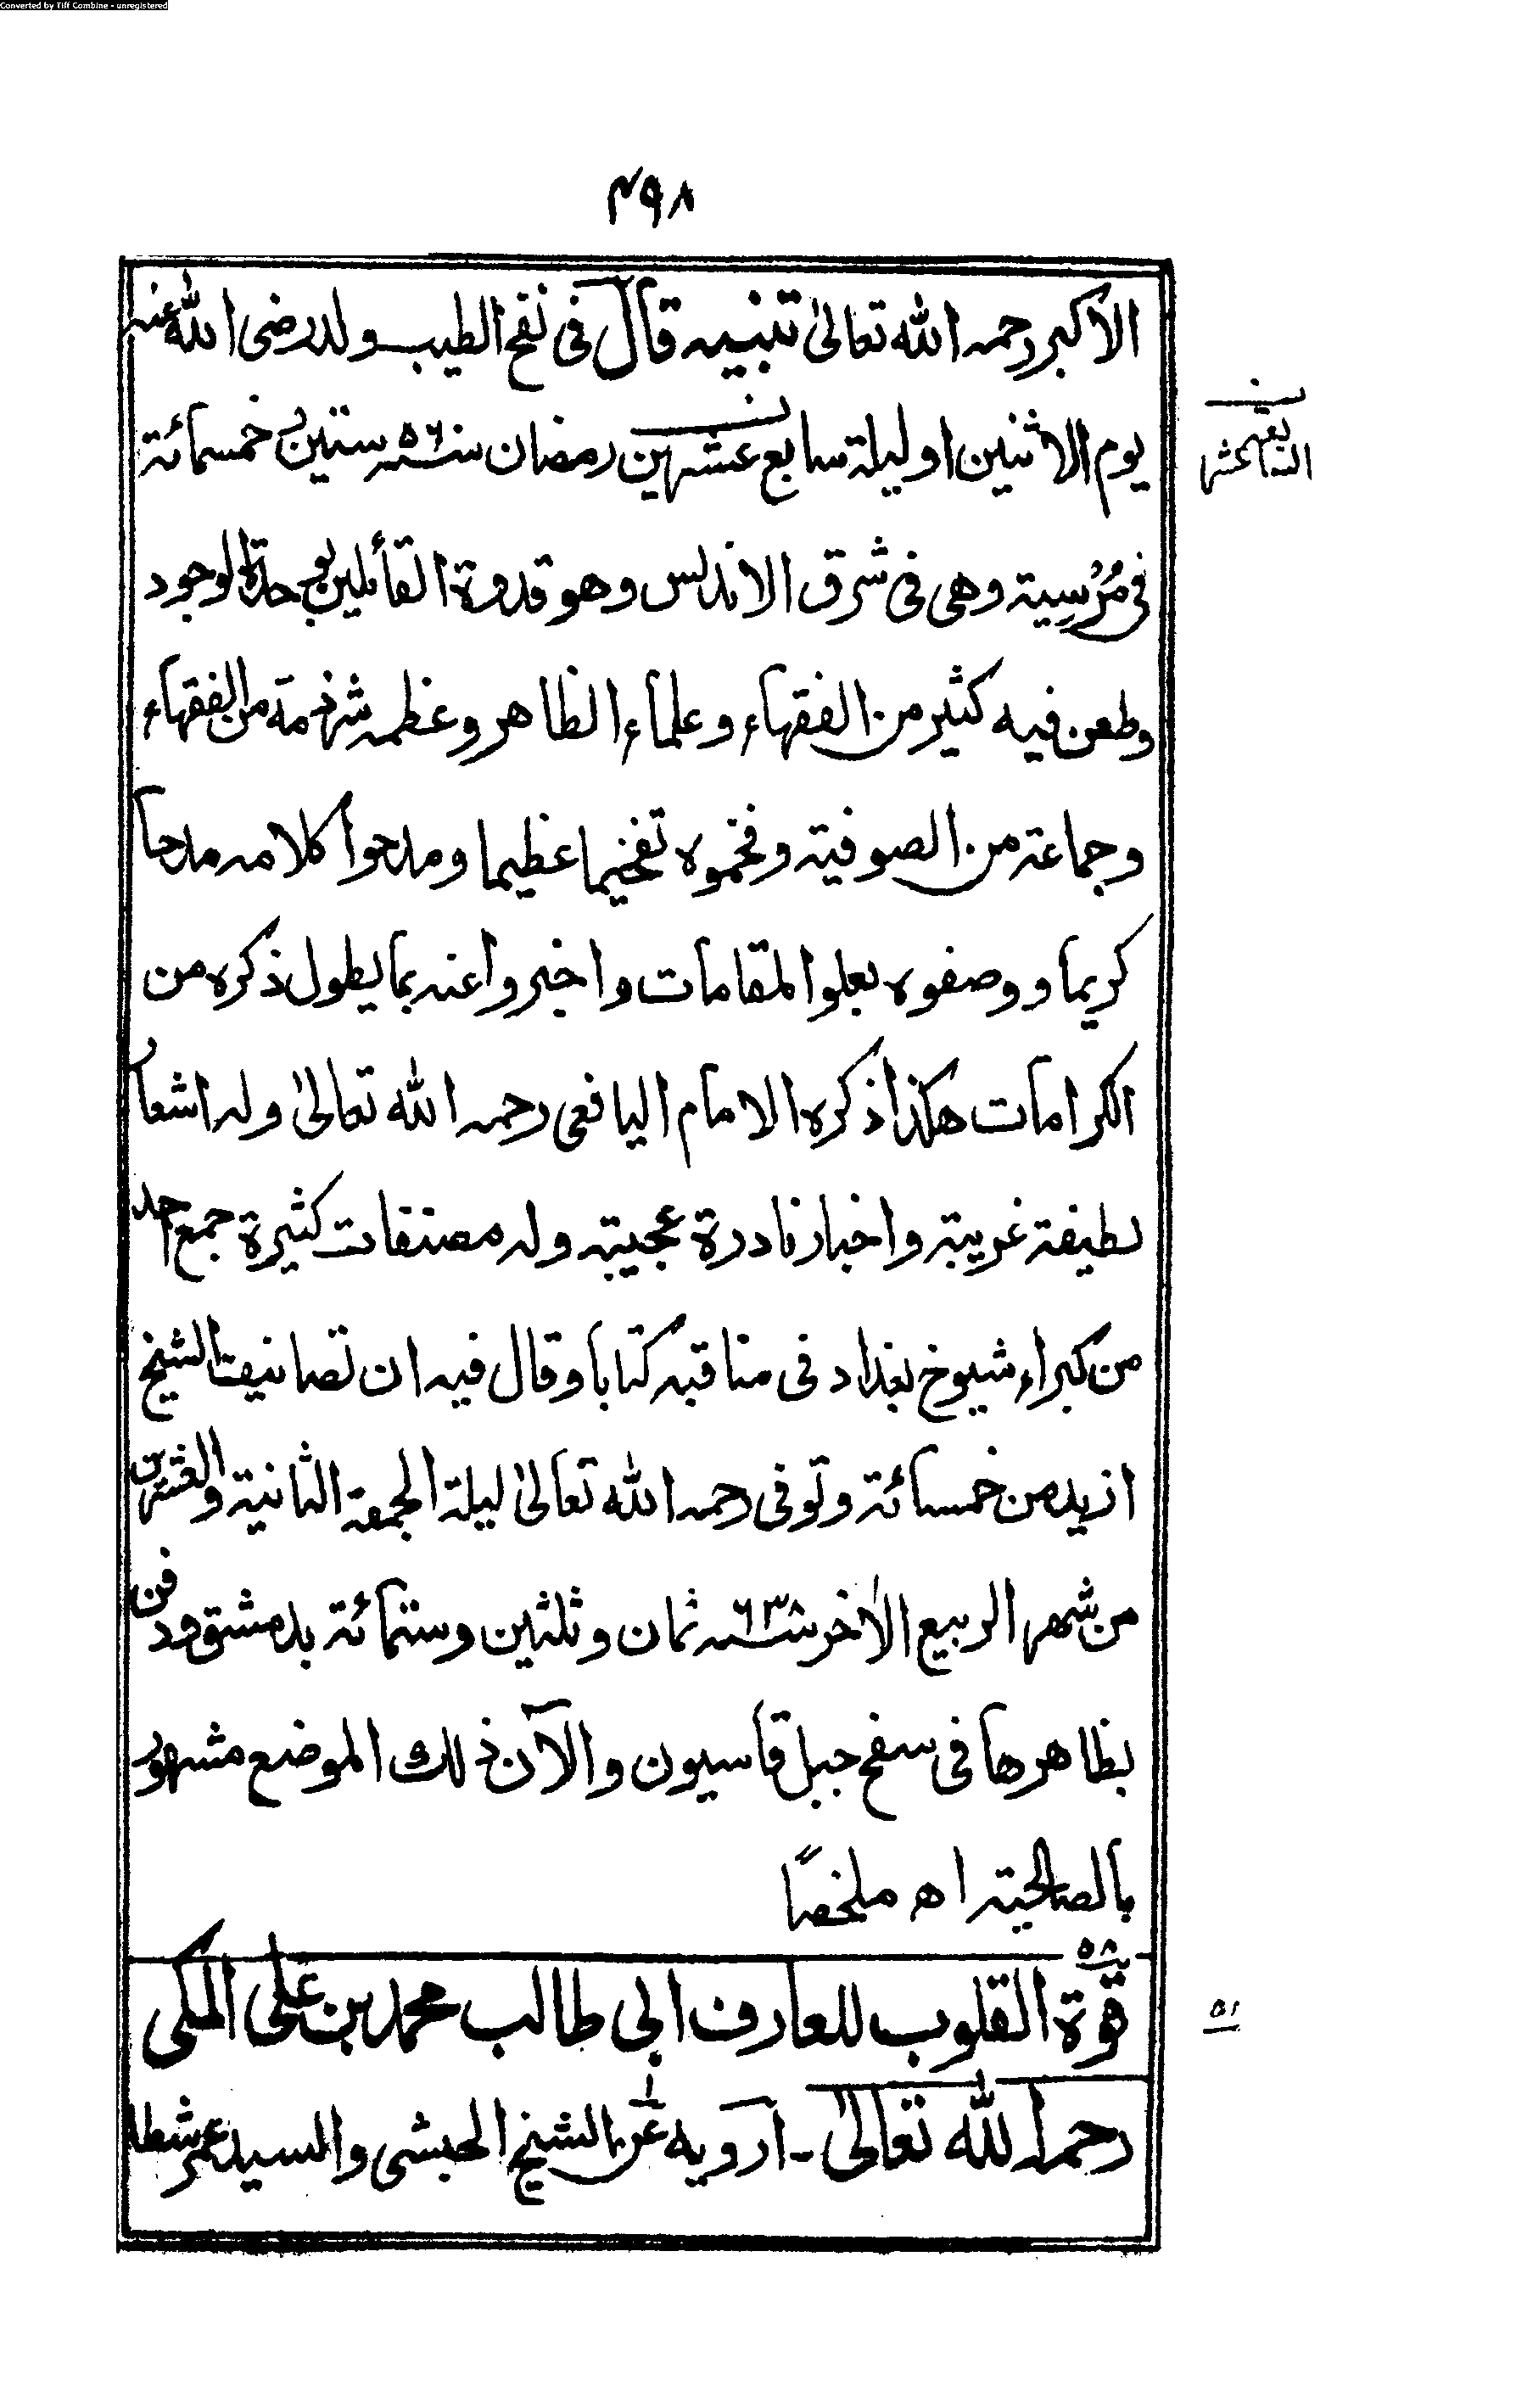 Converted by Tiff Combine - unregistered
٤٩٨
الاكبر رحمه الله تعالىٰ تنبيه قال فى نفح الطيب ولد رضى الله عنه
يوم الاثنين او ليلة سابع عشرين رمضان سنة ٥٦٠ ستين و خمسمائة
فى مُرْسِية وهى فى شرق الاندلس وهو قدوة القائلين بوحدة الوجود
وطعن فيه كثير من الفقهاء وعلماء الظاهر وعظمه شرذمة من الفقهاء
وجماعة من الصوفية وفخموه تفخيما عظيما ومدحوا كلامه مدحا
كريما ووصفوه بعلو المقامات واخبروا عنه بما يطول ذكره من
الكرامات هكذا ذكره الامام اليافعى رحمه الله تعالىٰ وله اشعار
لطيفة غريبة واخبار نادرة عجيبة وله مصنفات كثيرة جمع احد
من كبراء شيوخ بغداد فى مناقبه كتابا وقال فيه ان تصانيف الشيخ
ازيد من خمسمائة وتوفى رحمه الله تعالىٰ ليلة الجمعة الثانية والعشرين
من شهر الربيع الاٰخر سنة ٦٣٨ ثمان وثلثين وستمائة بدمشق ودفن
بظاهرها فى سفح جبل قاسيون والآن ذلك الموضع مشهور
بالصالحية اه ملخصًا
قوة القلوب للعارف ابى طالب محمد بن على المكى
٥١
رحمه الله تعالىٰ ـ ارويه عن الشيخ الحبشى والسيد عمر شطا